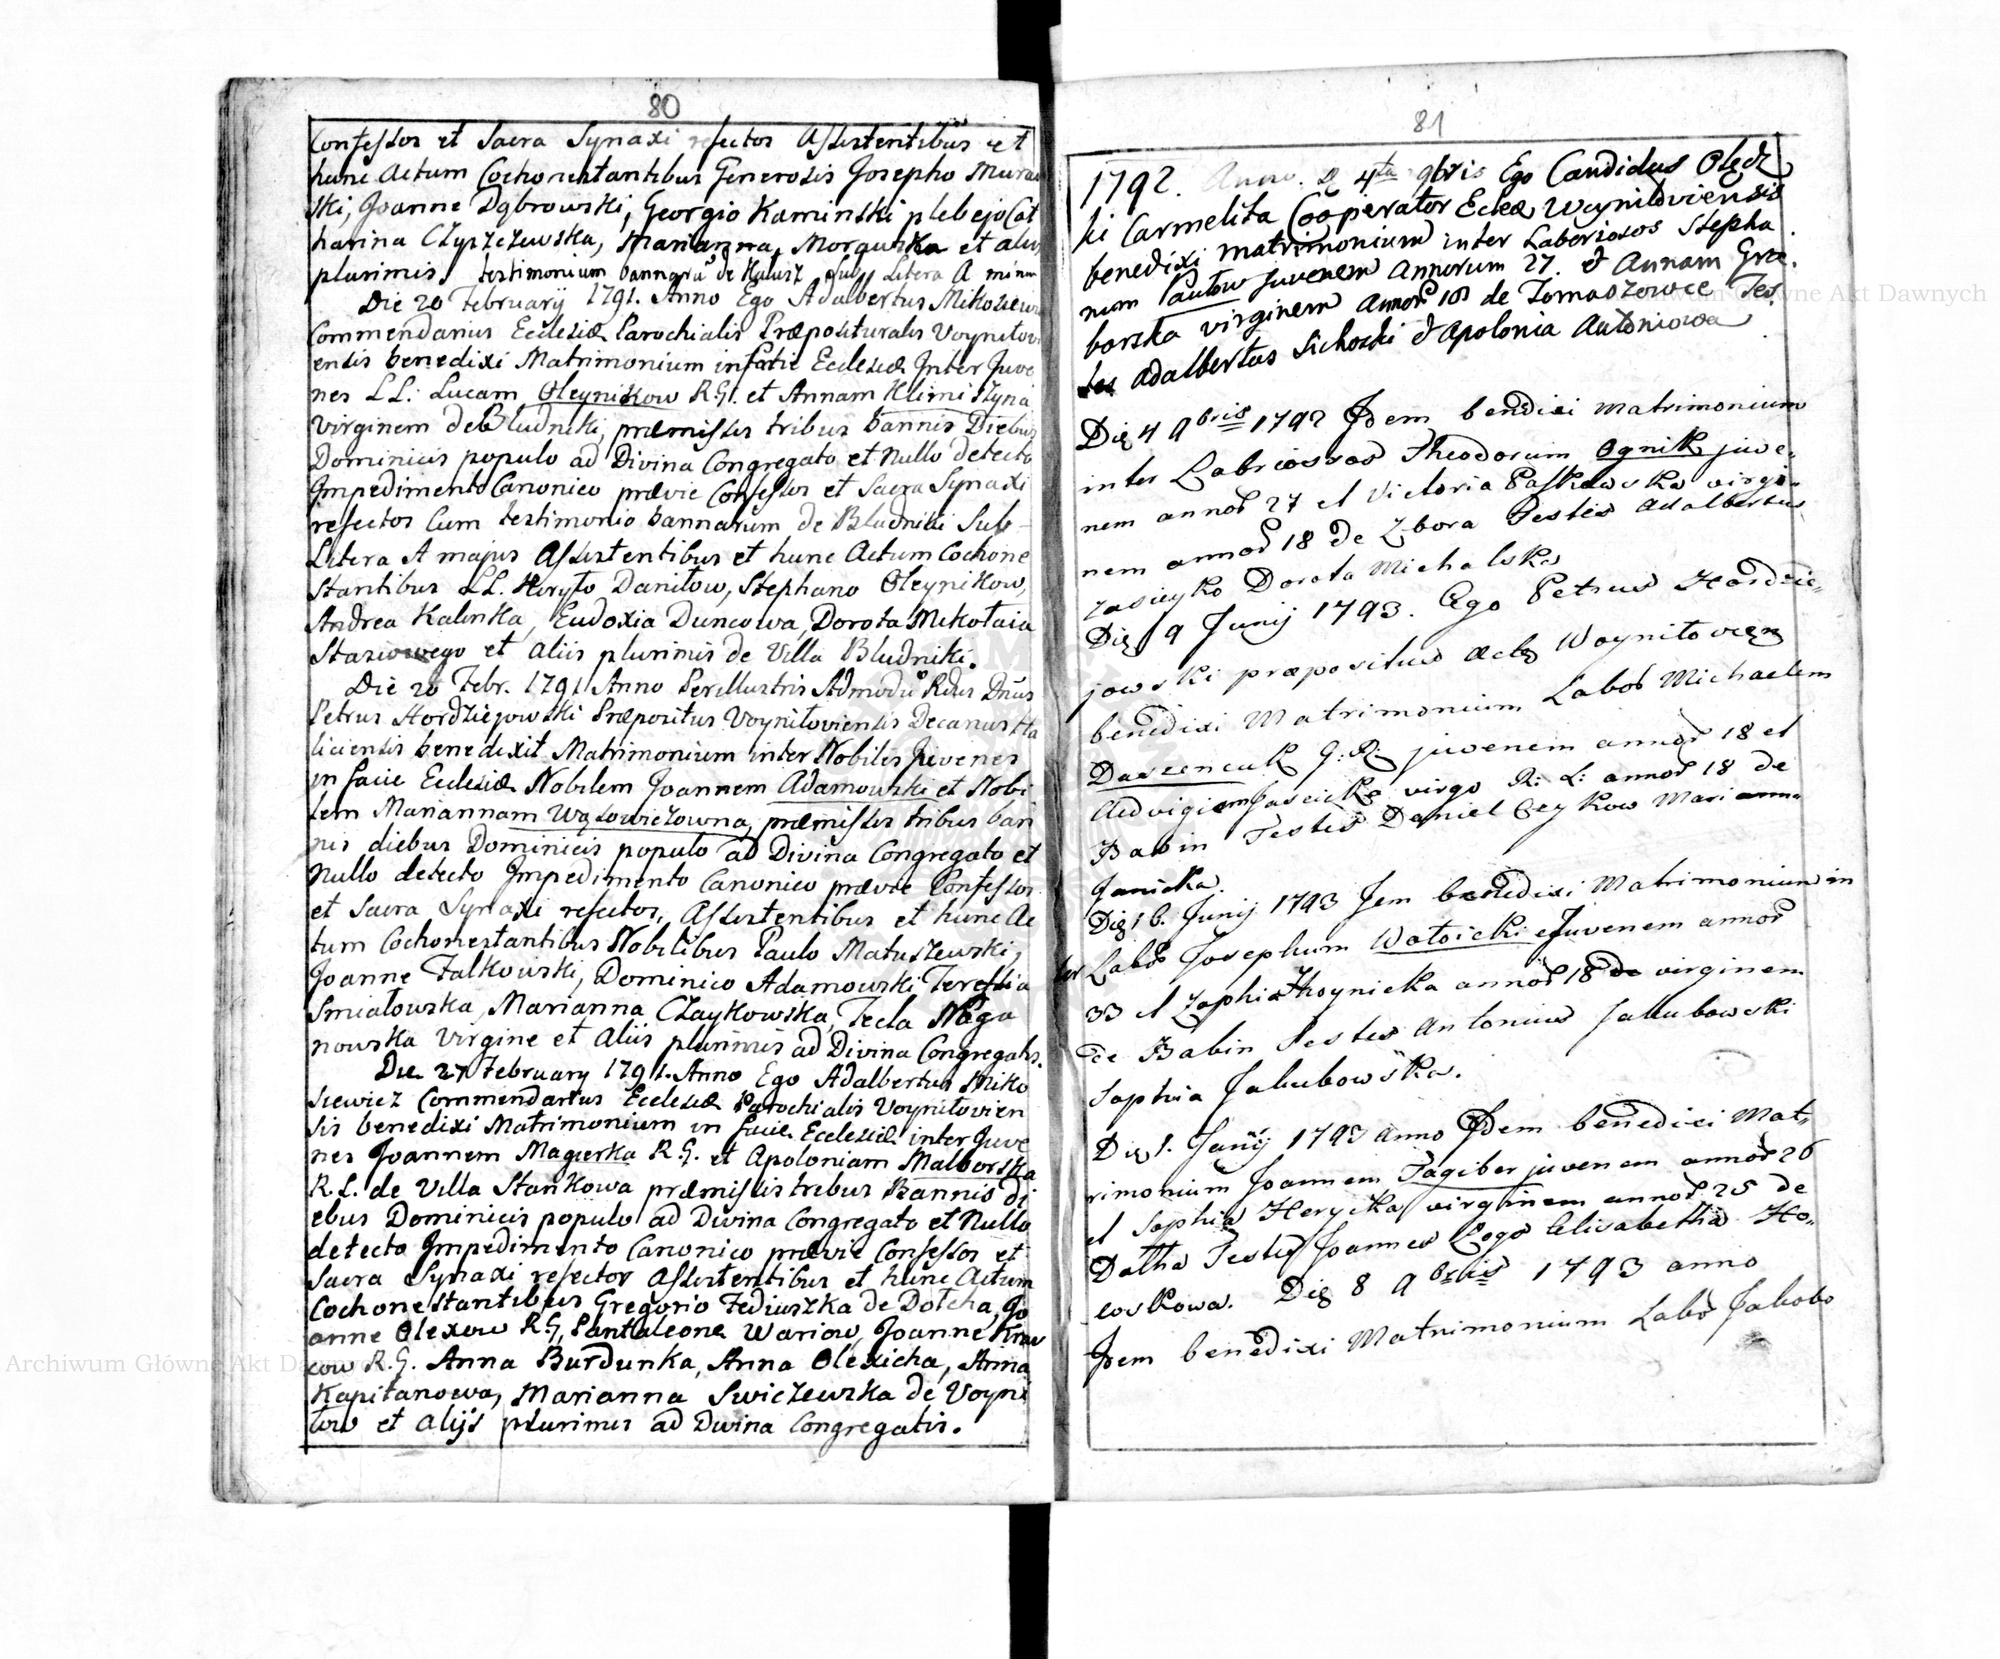 80
Confessos et Sacra Synaxi refectos Assistentibus et
hunc Actum Cochonestantibus Generosis Josepho Muraw
ski, Joanne Dąbrowski, Georgio Kaminski plebejo Cat
harina Czyrzczewska, Marianna, Morgurska et aliis
plurimis. testimonium bannorũ de Kalusz sub Litera A minus
Die 20 Februarij 1791. Anno Ego Adalbertus Mikosiewi
Commendarius Ecclesiæ Parochialis Præposituralis Voynilovi
ensis benedixi Matrimonium in facie Ecclesiæ Inter Juve
nes LL: Lucam Oleynikow R.G. et Annam Klimiszyna
Virginem de Bludniki, præmissis tribus bannis Diebus
Dominicis populo ad Divina Congregato et Nullo detecto
Impedimento Canonico prævie Confessos et Sacra Synaxi
refectos Cum testimonio bannarum de Bludniki Sub
Litera A majus Assistentibus et hunc Actum Cochone
stantibus LL. Hryto Daniłow, Stephano Oleynikow,
Andrea Kalinka, Eudoxia Duncowa, Dorota Mikołaia
Stasiowego et Aliis plurimis de Villa Bludniki.
Die 20 Febr. 1791 Anno Perillustris Admodũ Rdus Dnus
Petrus Hordziejowski Præpositus Voyniloviensis Decanus Ha
liciensis benedixit Matrimonium inter Nobiles Juvenes
in facie Ecclesiæ Nobilem Joannem Adamowski et Nobi
lem Mariannam Wąsowiczowna, præmissis tribus ban
nis diebus Dominicis populo ad Divina Congregato et
Nullo detecto Impedimento Canonico prævie Confessos
et Sacra Synaxi refectos, Assistentibus et hunc Ac
tum Cochonestantibus Nobilibus Paulo Matuszewski,
Joanne Falkowski, Dominico Adamowski Teressia
Smiałowska, Marianna Czaykowska, Tecla Naga
nowska Virgine et Aliis plurimis ad Divina Congregatis.
Die 27 February 1791. Anno Ego Adalbertus Miko
siewicz Commendarius Ecclesiæ Parochialis Voynilovien
sis benedixi Matrimonium in facie Ecclesiæ inter Juve
nes Joannem Magierka R.G. et Apoloniam Malborska
R.L. de Villa Stankowa præmissis tribus Bannis di
ebus Dominicis populo ad Divina Congregato et Nullo
detecto Impedimento Canonico prævie Confessos et
Sacra Synaxi refectos Assistentibus et hunc Actum
Cochonestantibus Gregorio Fediuszka de Dołcha, Jo
anne Olexow R.G, Pantaleone Wariow, Joanne Kraw
cow R.G. Anna Burdunka, Anna Olexicha, Anna
Kapitanowa, Marianna Swiczewska de Voyni
łow et alijs plurimis ad Divina Congregatis.
81
1792. Anno. D 4ta 9bris Ego Candidus Olędz
ki Carmelita Cooperator Eclea Woyniloviensis
benedixi matrimonium inter Laboriosos Stepha
num Pautow Juvenem Annorum 27. et Annam Grze.
borska virginem Annor 18 de Tomaszowce Tes
tes Adalbertus Sichocki et Apolonia Antoniowa
Die 4 9bris 1792 Idem bendixi matrimonium
inter Labriossos Theodorum Ognik juve-
nem annor 27 et Victoria Paszkowska virgi-
nem annor 18 de Zbora Testes Adalbertus
Zasieyko Dorota Michalska
Die 9 Junij 1793. Ego Petrus Hordzie-
jowski præpositus Ecle Woynilovien
benedixi Matrimonium Labor Michaelem
Daszenczuk G: R: juvenem annor 18 et
Advigiem Jascicka virgo R: L: annor 18 de
Babin Testes Daniel Oleykow Marianna
Janicka.
Die 16. Junij 1793 Jem benedixi Matrimonium in
ter Labor Josephum Watoicki Juvenem annor
33 et Zophia Khoynicka annor 18 de virginem
de Babin Testes Antonius Jakubowski
Sophia Jakubowska.
Die 1. Junij 1793 anno Idem benedixi Mat,
rimonium Joannem Tagiber juvenem annor 26
et Sophia Herycka virginem annor 25 de
Dołha Testes Joannes Rogo Elisabetha Ho-
coskowa. Die 8 9bris 1793 anno
Idem benedixi Matrimonium Labor Jakobo
Archiwum Główne Akt Dawnych
Archiwum Główne Akt Dawnych